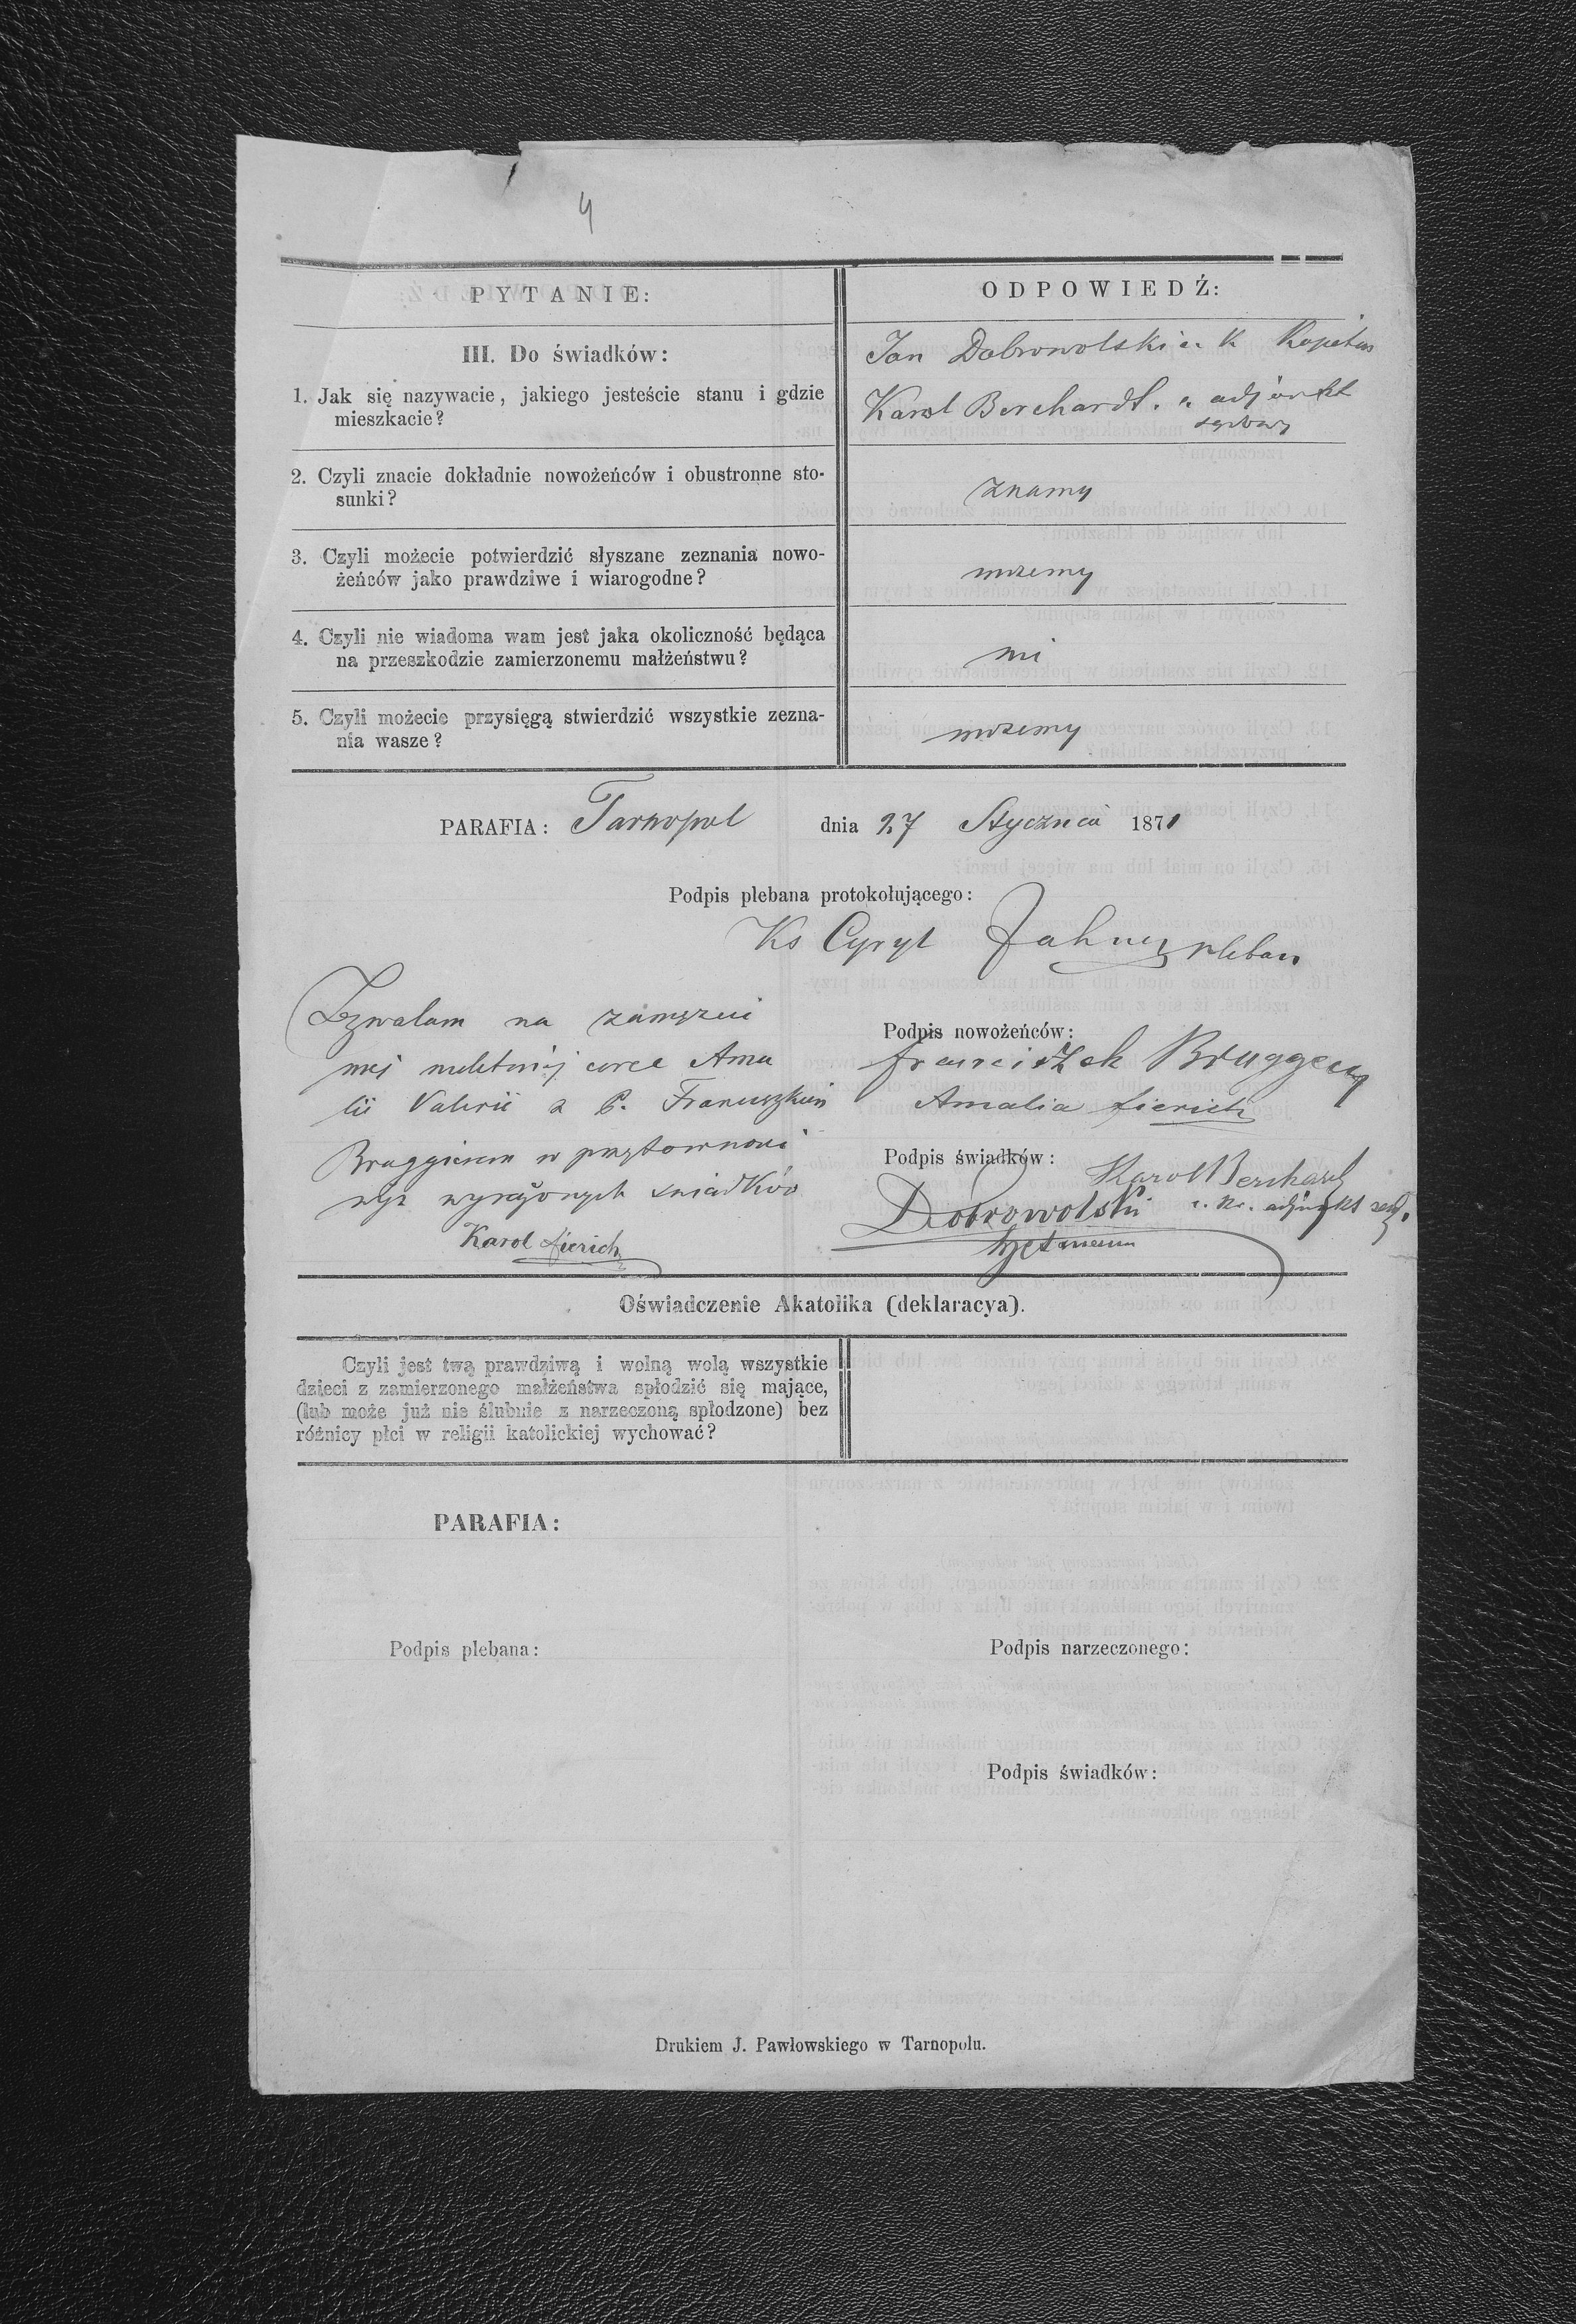 4
PYTANIE:
ODPOWIEDŹ:
III. Do świadków:
1. Jak się nazywacie, jakiego jesteście stanu i gdzie
mieszkacie?
Jan Dobrowolski c. k Kapitan
Karol Berchardt. c. adjunkt
sądowy
2. Czyli znacie dokładnie nowożeńców i obustronne sto-
sunki?
znamy
3. Czyli możecie potwierdzić słyszane zeznania nowo-
żeńców jako prawdziwe i wiarogodne?
mozemy
4. Czyli nie wiadoma wam jest jaka okoliczność będąca
na przeszkodzie zamierzonemu małżeństwu?
ni
5. Czyli możecie przysięgą stwierdzić wszystkie zezna-
nia wasze?
mozemy
PARAFIA: Tarnopol dnia 27 Stycznia 1871
Podpis plebana protokołującego:
Ks Cyryl pleban
Zezwalam na zamęzcie
mej córce Ama
lii Valerii z P. Franciszkiem
Bruggiem w przytomnosci
wyż wyrażonych swiadków
Karol Fierich
Podpis nowożeńców:
Franciszek Bruggeny
Amalia Fierich
Podpis świadków:
Karol Berchardt
c. kr. adjunkt sąd.
Dobrowolski
Oświadczenie Akatolika (deklaracya).
Czyli jest twą prawdziwą i wolną wolą wszystkie
dzieci z zamierzonego małżeństwa spłodzić się mające,
(lub może już nie ślubnie z narzeczoną spłodzone) bez
różnicy płci w religii katolickiej wychować?
PARAFIA:
Podpis plebana:
Podpis narzeczonego:
Podpis świadków:
Drukiem J. Pawłowskiego w Tarnopolu.